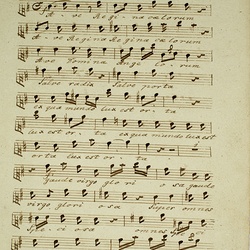 A - ve Re gi - na cælorum
A - ve Regina Regina cælorum
Ave Domina Ange lo - rum
Salve radix Salve porta
ex qua mundo lux est or - ta
lux est or - ta ex qua mundo lux est
orta lux est or - ta
gaude virgo glo ri - o - sa gaude
virgo glori o - sa Super omnes
Spe - ci osa omnes